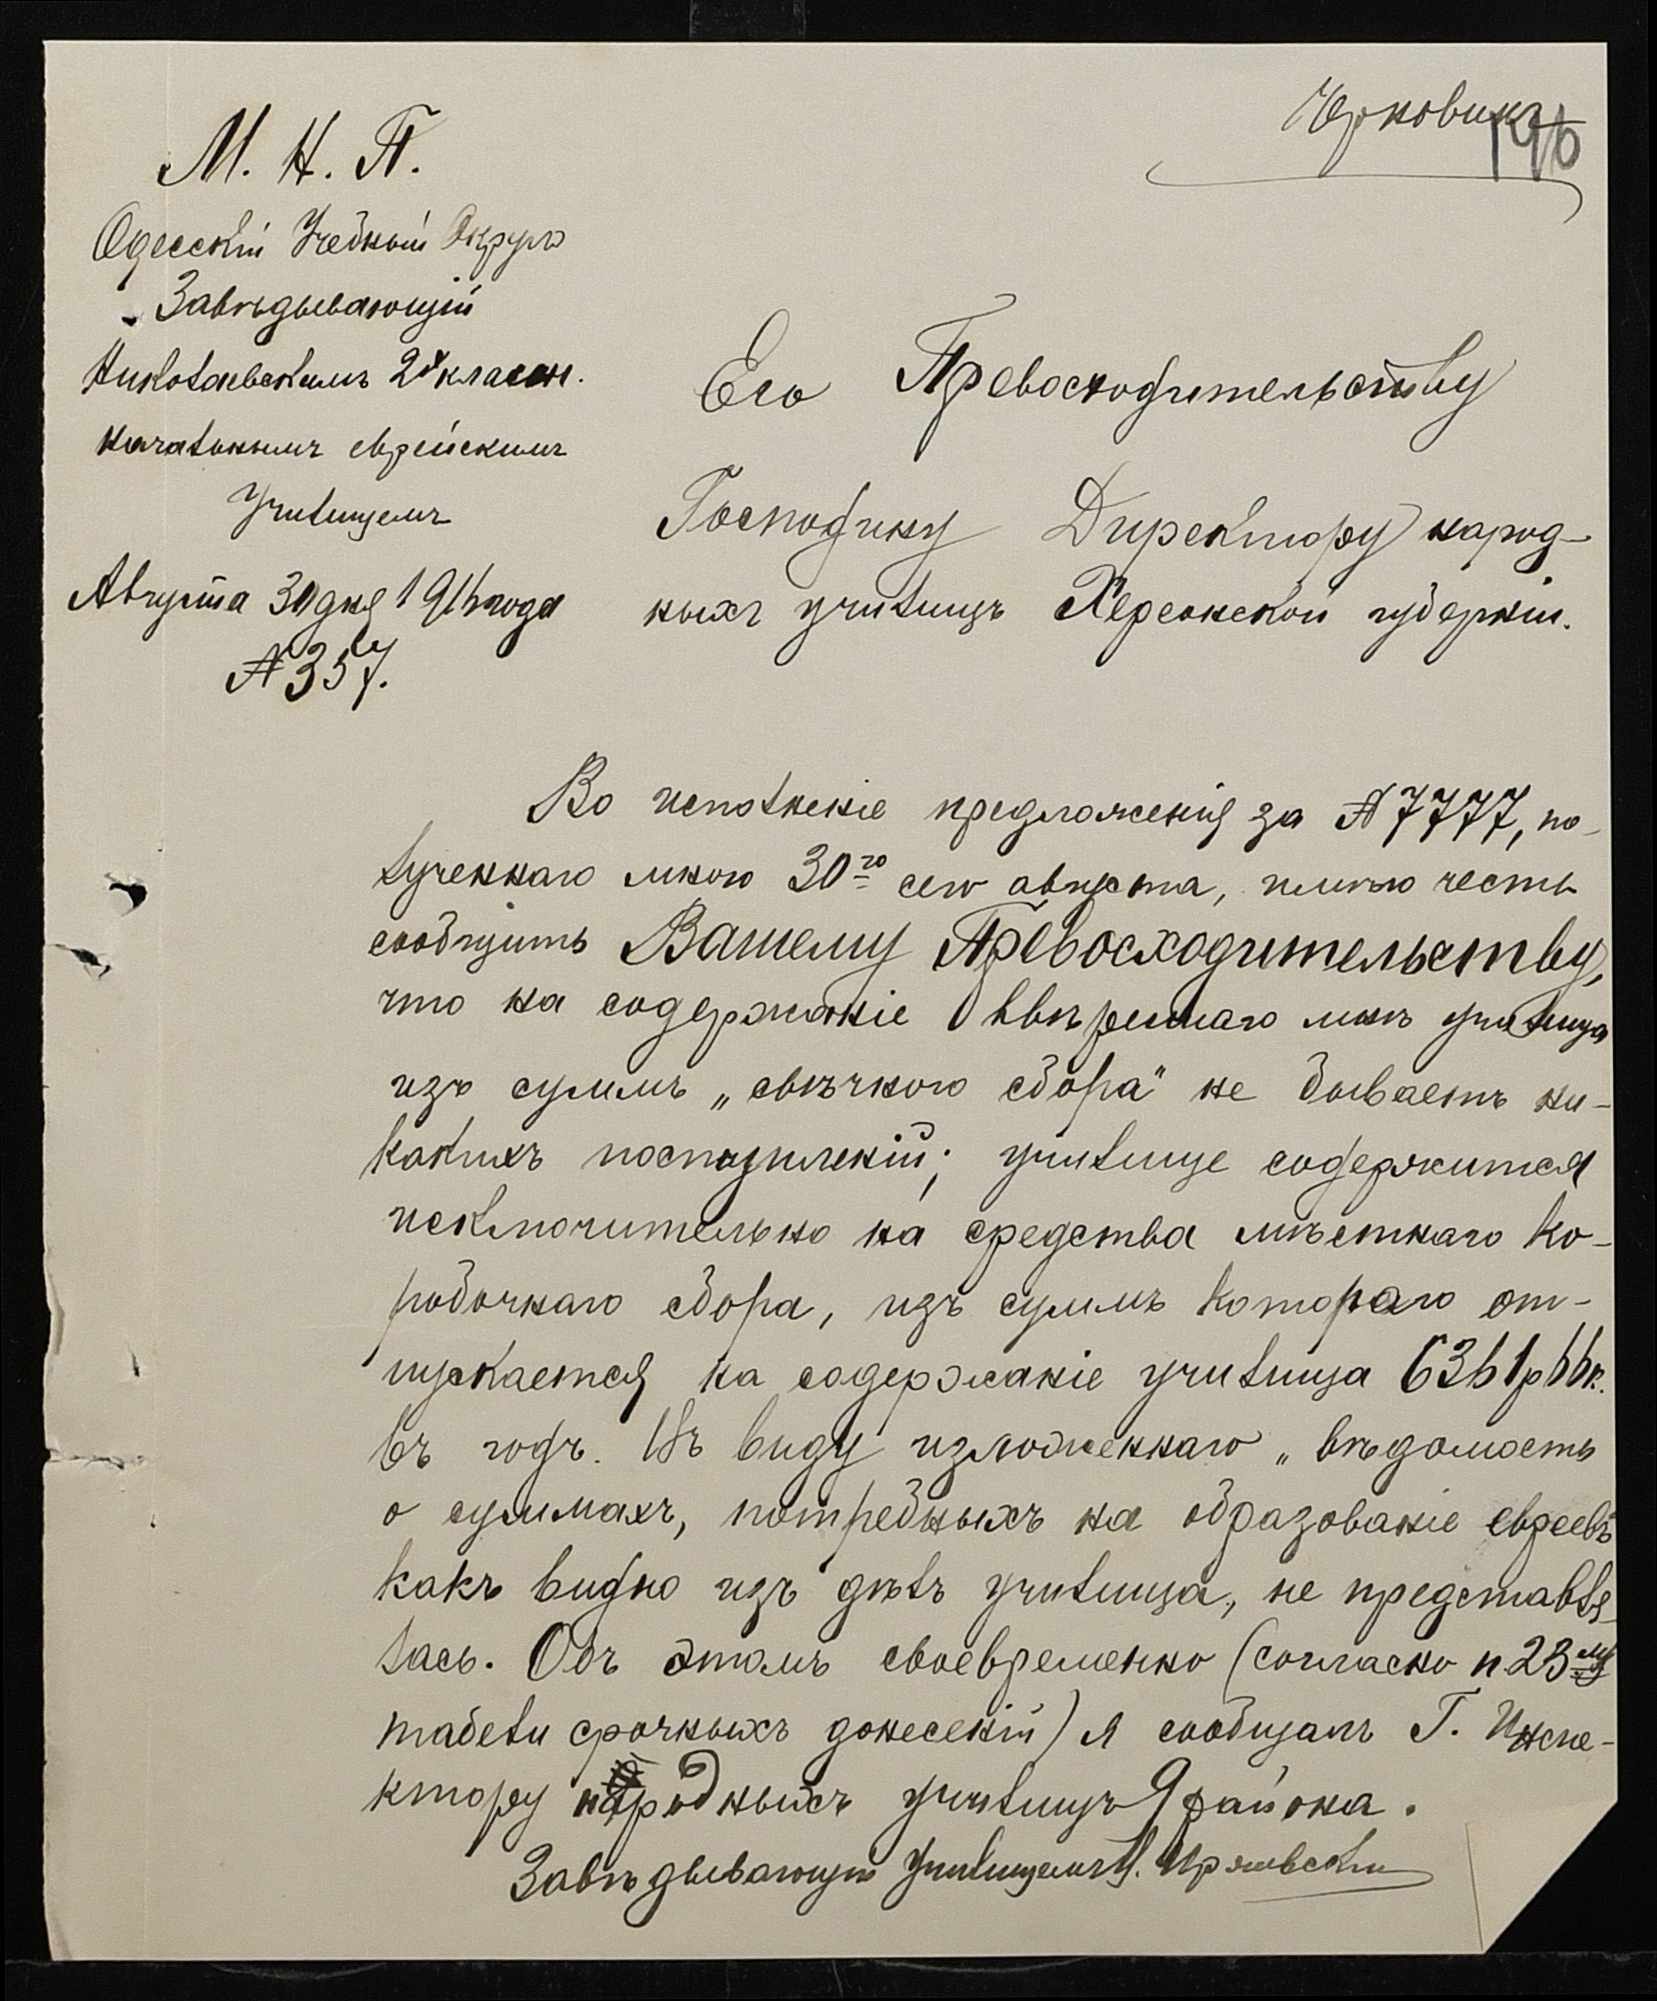 Черновикъ
196
М. Н. П.
Одесскій Учебный Округъ
Завѣдывающій
Николаевскимъ 2х классн.
начальнымъ еврейскимъ
училищемъ
Августа 30 дня 1916 года
№ 357.
Его Превосходительству
Господину Директору народ-
ныхъ училищъ Херсонской губерніи.
Во исполненіе предложенія за № 7777, по-
лученнаго мною 30го сего августа, имѣю честь
сообщить Вашему Превосходительству,
что на содержаніе ввѣреннаго мнѣ училища
изъ суммъ „свѣчного сбора" не бываетъ ни-
какихъ поступленій; училище содержится
исключительно на средства мѣстнаго ко-
робочнаго сбора, изъ суммъ котораго от-
пускается на содержаніе училища 6361 р 66 к.
въ годъ. Въ виду изложеннаго „вѣдомость
о суммахъ, потребныхъ на образованіе евреевъ
какъ видно изъ дѣлъ училища, не представля-
лась. Объ этомъ своевременно (согласно п 23му
табели срочныхъ донесеній) я сообщалъ Г. Инспе-
ктору народныхъ училищъ 9 района.
Завѣдывающій Училищемъ